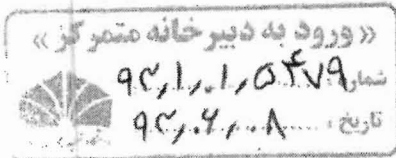 «ورود به دبیرخانه متمرکز»
شماره ۹۲٫۱٫۰۱٫۵۴۷۹
تاریخ ۹۲٫۰۶٫۰۸